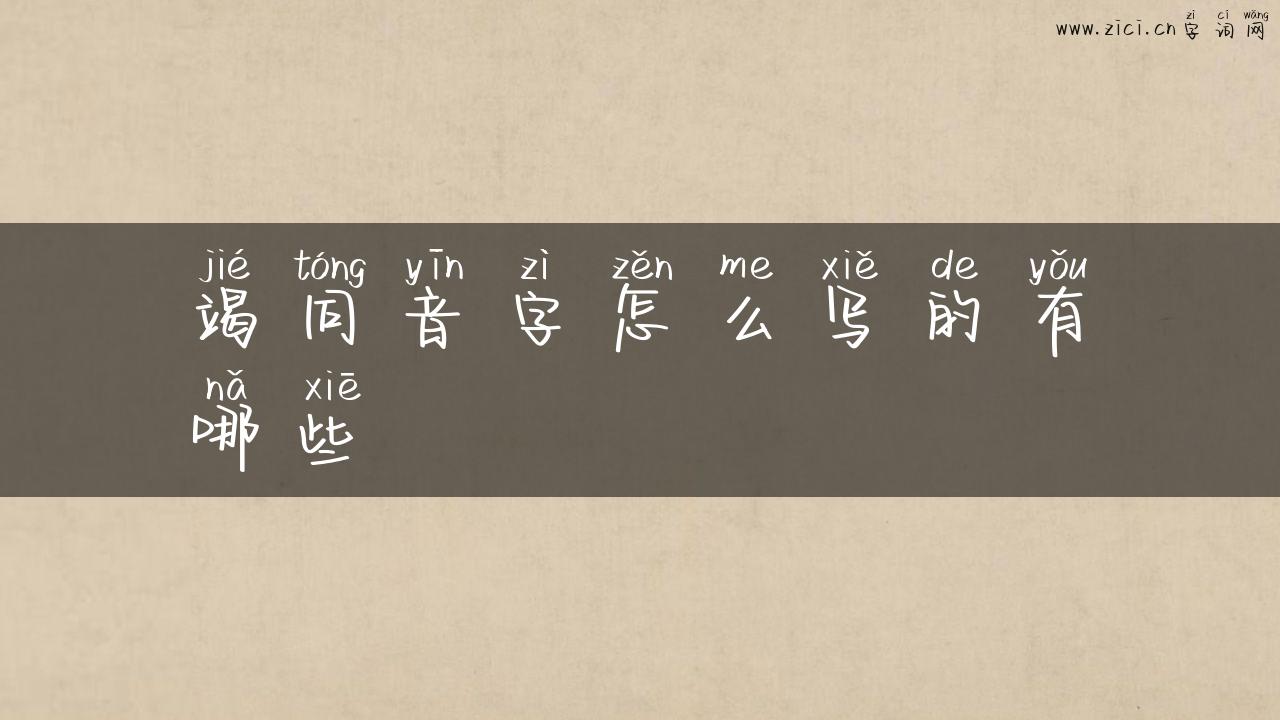 zì cí wǎng
www.zici.cn 字词网
jié tóng yīn zì zěn me xiě de yǒu
竭同音字怎么写的有
nǎ xiē
哪些